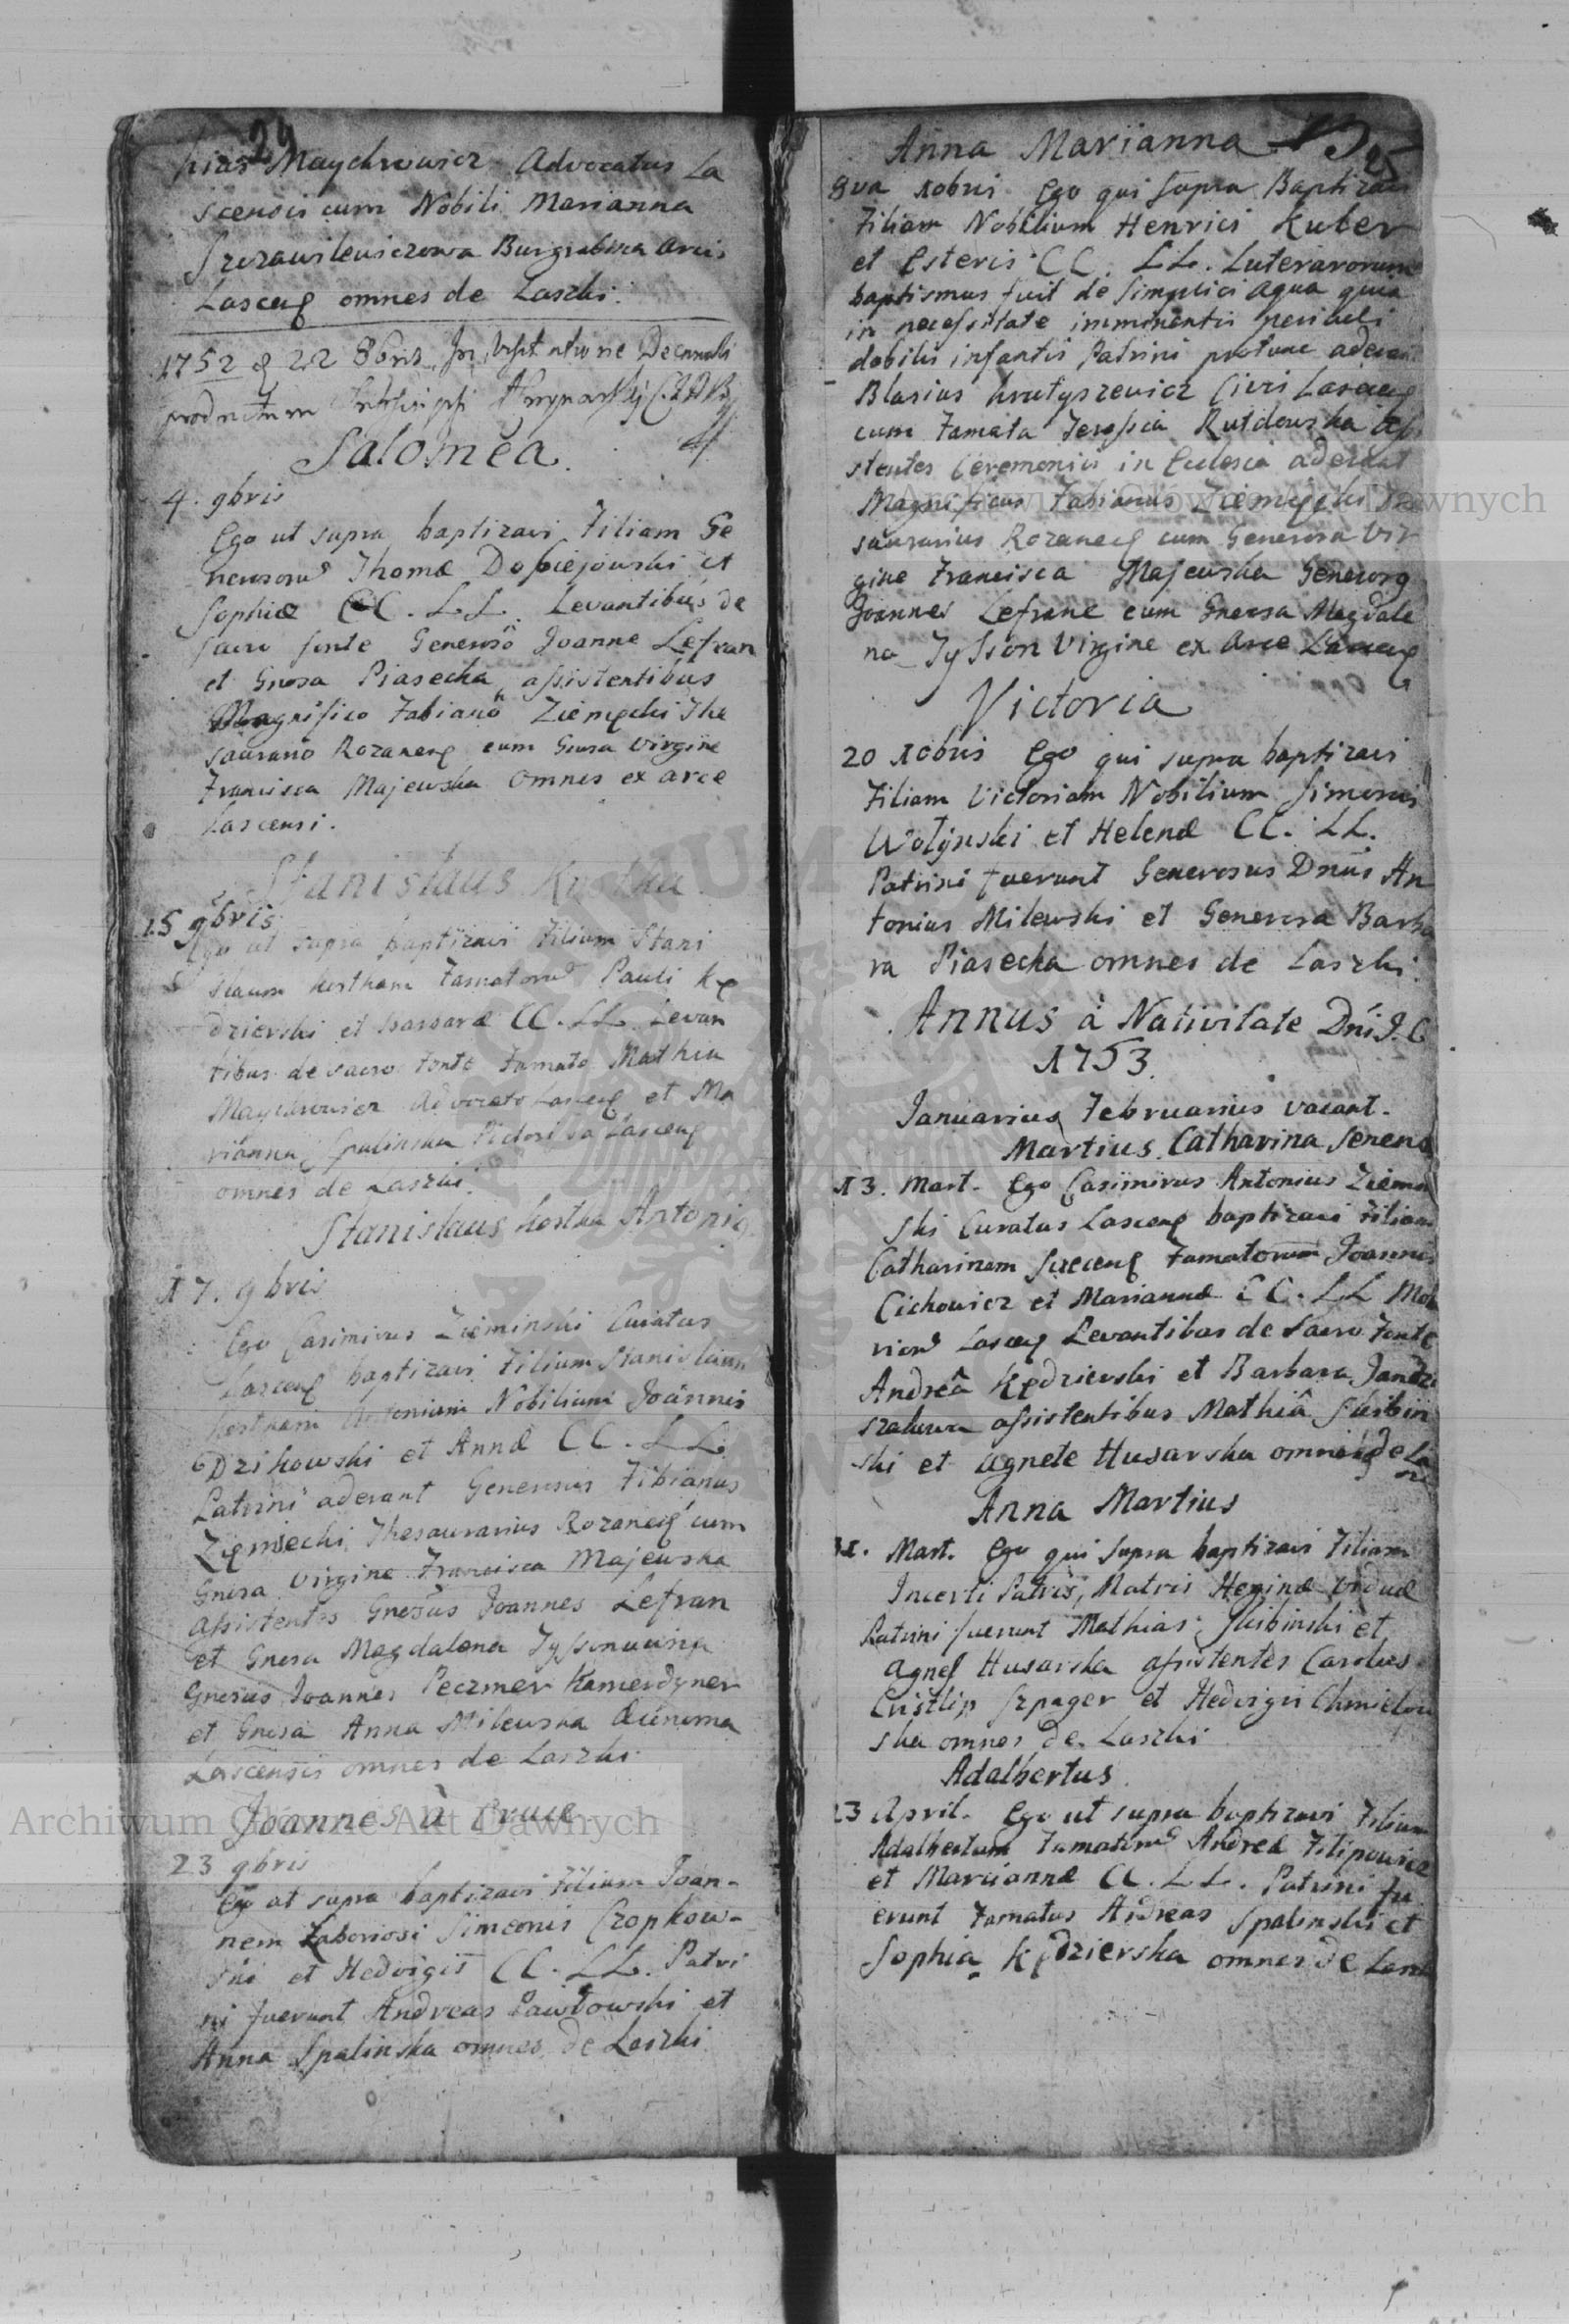 24
hias Maychrowicz Advocatus La
scensis cum Nobili Marianna
Burgrabina Arcis
Lascen omnes de Laszki.
1752 22 8bris In Decanali
productum
Salomea.
4. 9bris
Ego ut supra baptizavi Filiam Ge
nerosoru Thomæ Dopiejowski et
Sophiæ CC. LL. Levantibus de
sacro fonte Generoso Joanne Lefran
et Gnosa Piasecka assistentibus
Magnifico Fabiano Ziemęcki The
saurario Rozanens cum Gnosa Virgine
Francisca Majewska Omnes ex arce
Lascensi.
Stanislaus Kostka.
15 9bris
Ego ut supra baptizavi Filium Stani
slaum kostkam Famatoru Pauli Kę
dzierski et Barbaræ CC. LL. Levan
tibus de sacro fonte Famato Mathia
Maychrowicz Advocato Lascen et Ma
rianna Spalinska Lascen
omnes de Laszki.
Stanislaus kostka Antonius
17. 9bris
Ego Casimirus Zieminski Curatus
Lascens baptizavi Filium Stanislaum
kostkam Antonium Nobilium Joannis
Dzikowski et Annæ CC. LL.
Patrini aderant Generosus Fibianus
Ziemiecki Thesaurarius Rozanens cum
Gnosa Virgine Francisca Majewska
Assistentes Gnosus Joannes Lefran
et Gnosa Magdalena
Gnosus Joannes Peczmer Kamerdyner
et Gnosa Anna Milewska
Lascensis omnes de Laszki.
Joannes à Cruce
23 9bris
Ego ut supra baptizavi Filium Joan-
nem Laboriosi Simeonis Czopkow-
ski et Hedvigis CC. LL. Patri
ni fuerunt Andreas Pawłowski et
Anna Spalinska omnes de Laszki.
Anna Marianna
8va Xobris Ego qui supra Baptizavi
Filiam Nobilium Henrici Kuber
et Esteris CC. LL. Luteranorum
baptismus fuit de simplici aqua quia
in necessitate imminentis periculi
debilis infantis Patrini protunc aderant
Blasius Civis Lascens
cum Famata Rutdowska Assi
stentes Ceremoniis in Ecclesia aderant
Magnificus Fabianus Ziemęcki The
saurarius Rozanens cum Generosa Vir
gine Francisca Majewska Generosg
Joannes Lefranc cum Gnerosa Magdale
na Tysson Virgine ex Arce Lascens
Victoria
20 Xobris Ego qui supra baptizavi
Filiam Victoriam Nobilium Simonis
Wołyński et Helenæ CC. LL.
Patrini fuerunt Generosus Dnus An
tonius Milewski et Generosa Barba
ra Piasecka omnes de Laszki.
Annus à Nativitate Dni J. C
1753.
Januarius Februarius vacant.
Martius. Catharina Senens
13. Mart. Ego Casimirus Antonius Ziemin
ski Curatus Lascens baptizavi Filiam
Catharinam Famatorum Joannis
Cichowicz et Mariannæ CC. LL
Lascens Levantibus de Sacro Fonte
Andreâ Kędzierski et Barbara
assistentibus Mathiâ Skibin
ski et Agnete Husarska omnes de La
Anna Martius
Mart. Ego qui supra baptizavi Filiam
Incerti Patris, Matris viduæ
Patrini fuerunt Mathias Skibinski et
Agnes Husarska assistentes Carolus
Szpager et Hedvigis Chmielow
ska omnes de Laszki
Adalbertus.
23 April. Ego ut supra baptizavi Filium
Adalbertum Famatoru Andreæ Filipowicz
et Mariannæ CC. LL. Patrini fu
erunt Famatus Andreas Spalinski et
Sophia Kędzierska omnes de Laszki
Archiwum Główne Akt Dawnych
Archiwum Główne Akt Dawnych